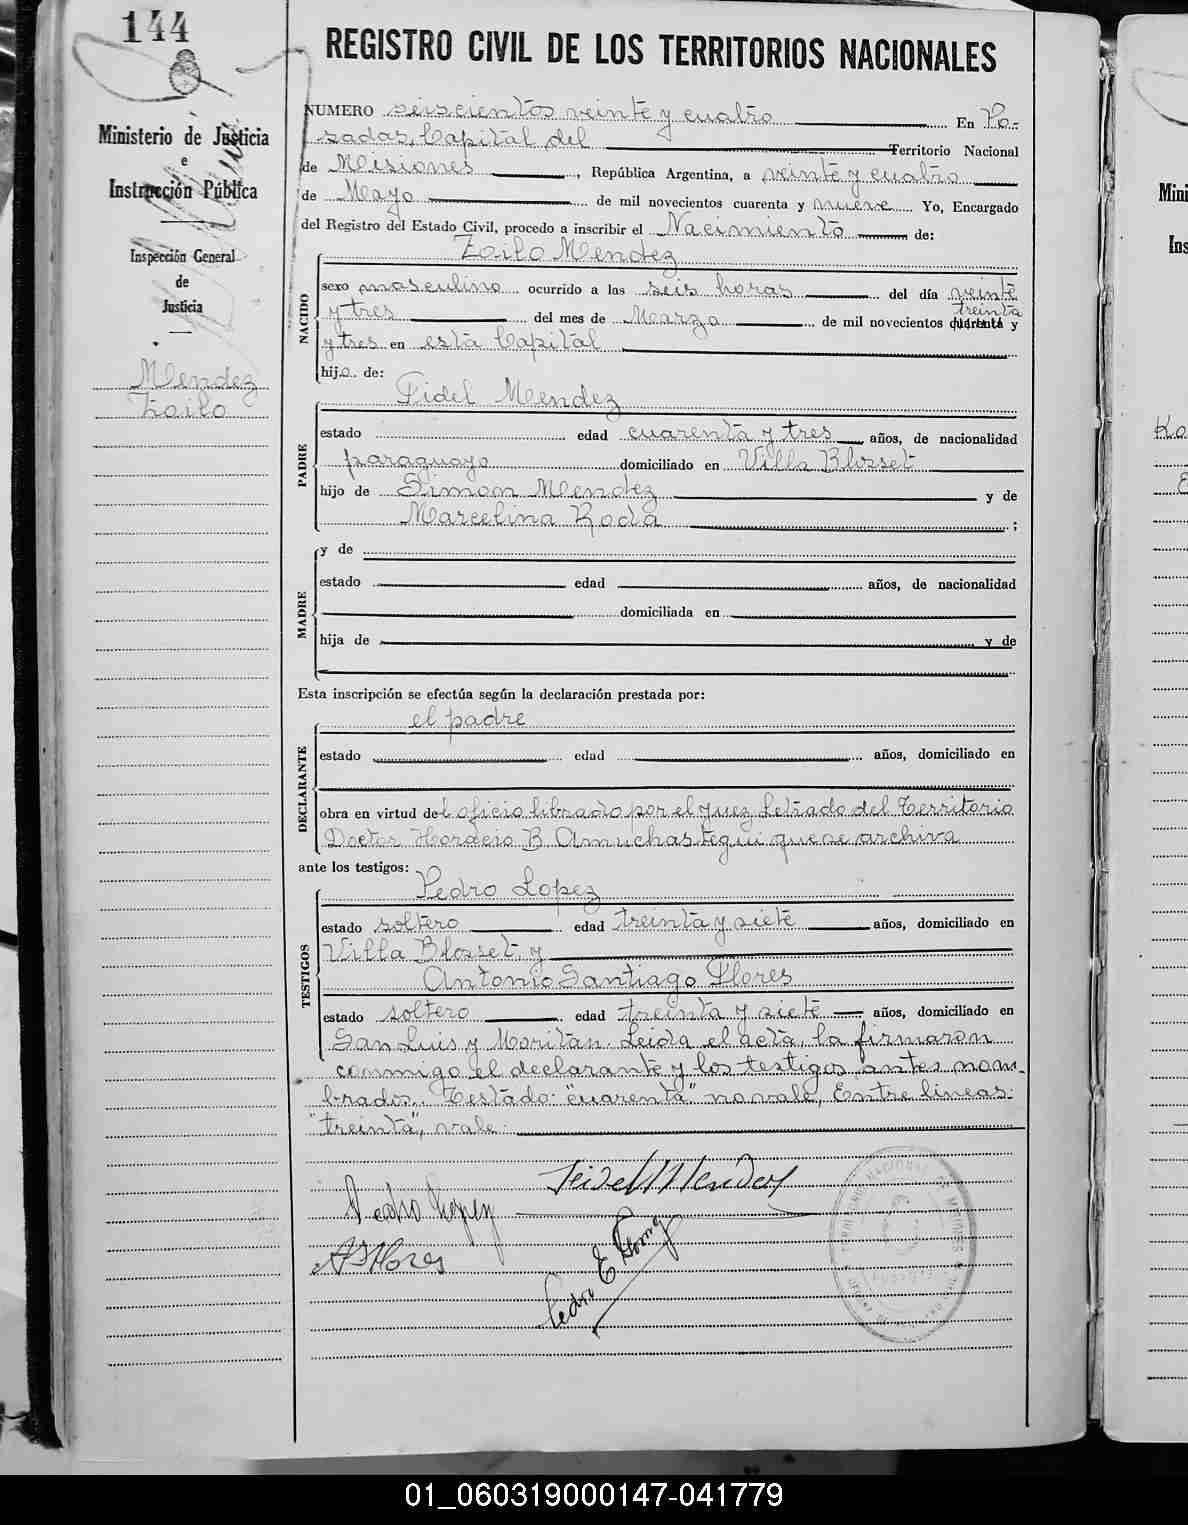 144
REGISTRO CIVIL DE LOS TERRITORIOS NACIONALES
Ministerio de Justicia
e
Instrucción Pública
Inspección General
de
Justicia
Mendez
Zoilo
NUMERO seiscientos veinte y cuatro En Po-
sadas, Capital del Territorio Nacional
de Misiones, República Argentina, a veinte y cuatro
de Mayo de mil novecientos cuarenta y nueve Yo, Encargado
del Registro del Estado Civil, procedo a inscribir el Nacimiento de:
Zoilo Mendez
NACIDO
sexo masculino ocurrido a las seis horas del día veinte
treinta
y tres del mes de Marzo de mil novecientos cuarenta y
y tres en esta Capital
hijo de:
Fidel Mendez
PADRE
estado edad cuarenta y tres años, de nacionalidad
paraguayo domiciliado en Villa Blosset
hijo de Simon Mendez y de
Marcelina Roda ;
MADRE
y de
estado edad años, de nacionalidad
domiciliada en
hija de y de
Esta inscripción se efectúa según la declaración prestada por:
el padre
DECLARANTE
estado edad años, domiciliado en
obra en virtud del oficio librado por el Juez Letrado del Territorio
Doctor Horacio B. Amuchastegui que se archiva
ante los testigos:
Pedro Lopez
TESTIGOS
estado soltero edad treinta y siete años, domiciliado en
Villa Blosset y
Antonio Santiago Flores
estado soltero edad treinta y siete años, domiciliado en
San Luis y Moritan. Leida el acta, la firmaron
conmigo el declarante y los testigos antes nom-
brados. Testado: "cuarenta" no vale, Entre lineas:
"treinta", vale.
Fidel Mendez
Pedro Lopez
AS Flores
Pedro E
Mini
Ins
01_060319000147-041779